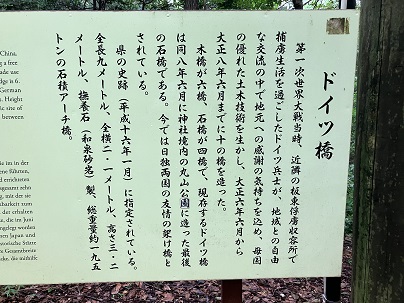 ドイツ橋
第一次世界大戦当時、近隣の板東俘虜収容所で
捕虜生活を過ごしたドイツ兵士が、地域との自由
な交流の中で地元への感謝の気持ちを込め、母国
の優れた土木技術を生かし、大正六年六月から
大正八年六月までに十の橋を造った。
木橋が六橋、石橋が四橋で、現存するドイツ橋
は同八年六月に神社境内の丸山公園に造った最後
の石橋である。今では日独両国の友情の架け橋と
されている。
県の史跡（平成十六年一月）に指定されている。
全長九メートル、全横二・一メートル、高さ三・二
メートル、撫養石（和泉砂岩）製、総重量約一九五
トンの石積アーチ橋。
China.
g a free
ade use
dge is 6.
German
s. Height
ic site of
between
ie im in der
ene führten,
d errichteten
gesamt zehn
g, mit der sie
barkeit zum
der erhalten
die im Juni
ngelegt worden
apan und
storische Stätte
Gesamtbreite
cke, die mithilfe